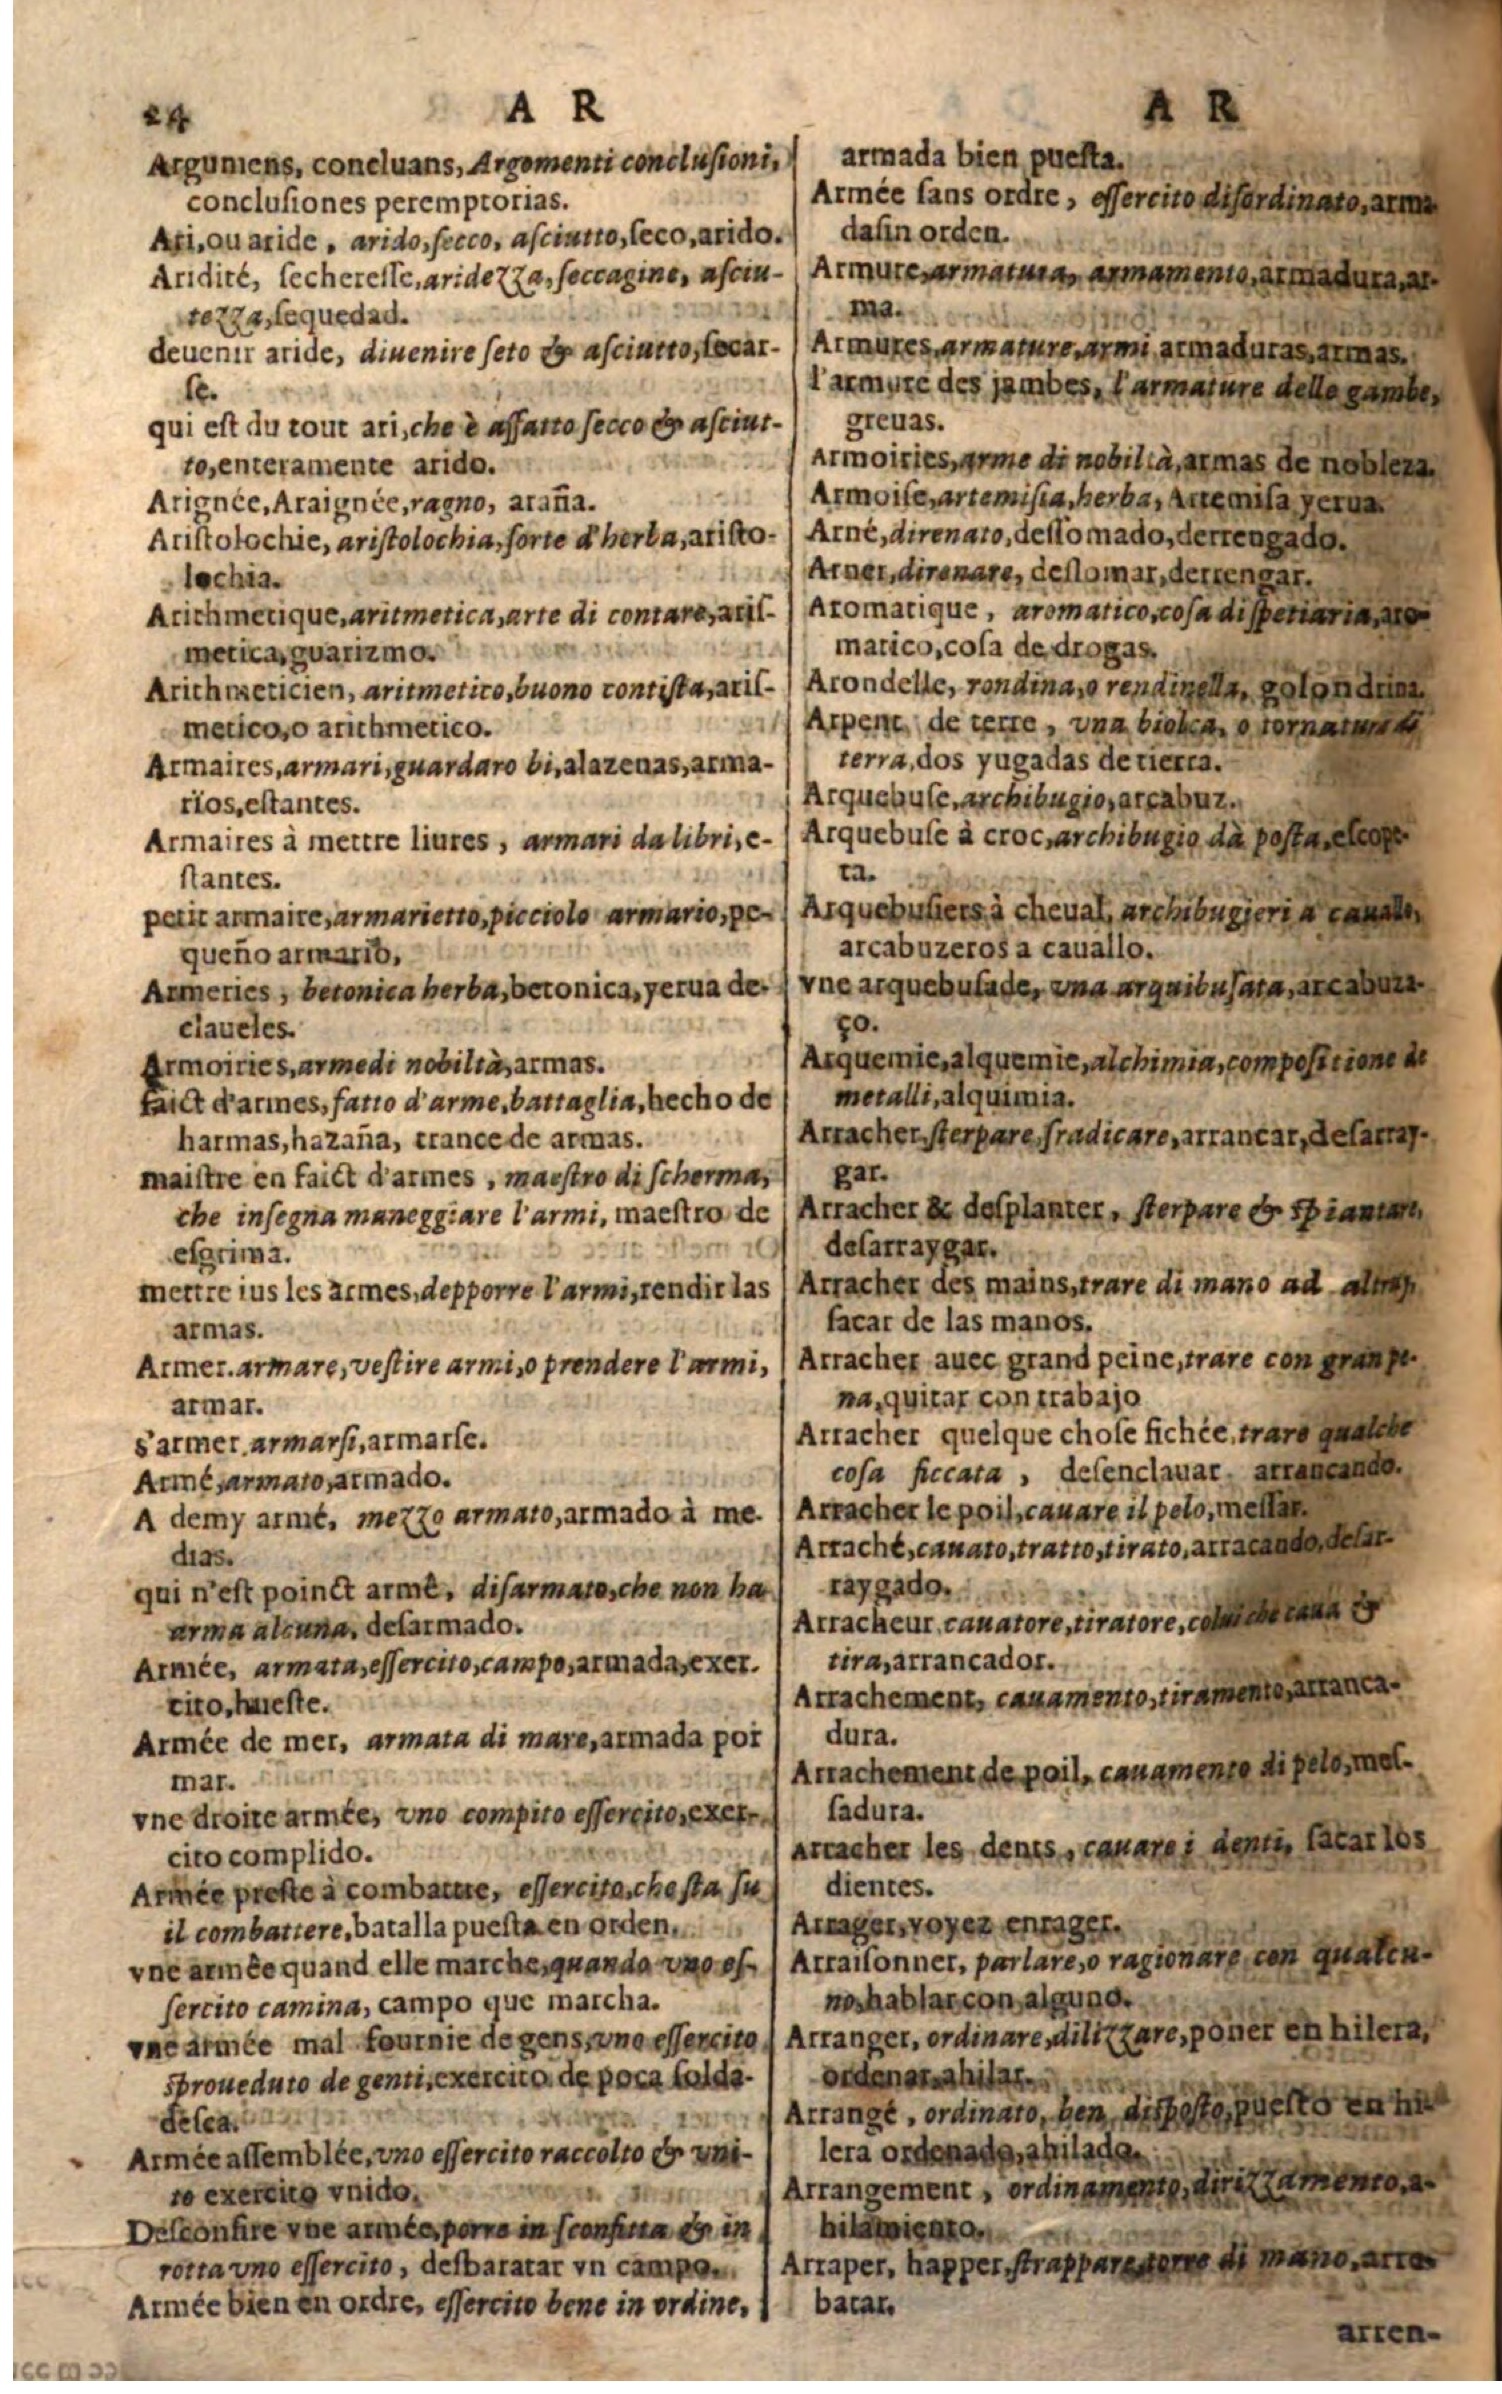 24
A R
Argumens, concluans, Argomenti conclusioni,
conclusiones peremptorias.
Ari, ou aride, arido, secco, asciutto, seco, arido.
Aridité, secheresse, aridezza, seccagine, asciu-
tezza, sequedad.
deuenir aride, diuenire seto & asciutto, secar-
se.
qui est du tout ari, che è affatto secco & asciut-
to, enteramente arido.
Arignée, Araignée, ragno, araña.
Aristolochie, aristolochia, sorte d'herba, aristo-
lochia.
Arithmetique, aritmetica, arte di contare, aris-
metica, guarizmo.
Arithmeticien, aritmetico, buono contista, aris-
metico, o arithmetico.
Armaires, armari, guardaro bi, alazenas, arma-
rios, estantes.
Armaires à mettre liures, armari da libri, e-
stantes.
petit armaire, armarietto, picciolo armario, pe-
queño armario,
Armeries, betonica herba, betonica, yerua de-
claueles.
Armoiries, arme di nobiltà, armas.
faict d'armes, fatto d'arme, battaglia, hecho de
harmas, hazaña, trance de armas.
maistre en faict d'armes, maestro di scherma,
che insegna maneggiare l'armi, maestro de
esgrima.
mettre ius les armes, depporre l'armi, rendir las
armas.
Armer. armare, vestire armi, o prendere l'armi,
armar.
s'armer, armarsi, armarse.
Armé, armato, armado.
A demy armé, mezzo armato, armado à me-
dias.
qui n'est poinct armé, disarmato, che non ha
arma alcuna, desarmado.
Armée, armata, essercito, campo, armada, exer-
cito, hueste.
Armée de mer, armata di mare, armada por
mar.
vne droite armée, vno compito essercito, exer-
cito complido.
Armée preste à combattre, essercito, che sta su
il combattere, batalla puesta en orden.
vne armée quand elle marche, quando vno es-
sercito camina, campo que marcha.
vne armée mal fournie de gens, vno essercito
sproueduto de genti, exercito de poca solda-
desca.
Armée assemblée, vno essercito raccolto & vni-
to exercito vnido.
Desconfire vne armée, porre in sconfitta & in
rotta vno essercito, desbaratar vn campo.
Armée bien en ordre, essercito bene in ordine,
A R
armada bien puesta.
Armée sans ordre, essercito disordinato, arma-
da sin orden.
Armure, armatura, armamento, armadura, ar-
ma.
Armures, armature, armi armaduras, armas.
l'armure des jambes, l'armature delle gambe,
greuas.
Armoiries, arme di nobiltà, armas de nobleza.
Armoise, artemisia, herba, Artemisa yerua.
Arné, direnato, deslomado, derrengado.
Arner, direnare, deslomar, derrengar.
Aromatique, aromatico, cosa di spetiaria, aro-
matico, cosa de drogas.
Arondelle, rondina, o rendinella, golondrina.
Arpent de terre, vna biolca, o tornatura di
terra, dos yugadas de tierra.
Arquebuse, archibugio, arcabuz.
Arquebuse à croc, archibugio dà posta, escope-
ta.
Arquebusiers à cheual, archibugieri a cauallo,
arcabuzeros a cauallo.
vne arquebusade, vna arquibusata, arcabuza-
ço.
Arquemie, alquemie, alchimia, compositione de
metalli, alquimia.
Arracher, sterpare, sradicare, arrancar, desarray-
gar.
Arracher & desplanter, sterpare & spiantare,
desarraygar.
Arracher des mains, trare di mano ad altrui,
sacar de las manos.
Arracher auec grand peine, trare con gran pe-
na, quitar con trabajo
Arracher quelque chose fichée, trare qualche
cosa ficcata, desenclauar arrancando.
Arracher le poil, cauare il pelo, messar.
Arraché, cauato, tratto, tirato, arracando, desar-
raygado.
Arracheur, cauatore, tiratore, colui che caua &
tira, arrancador.
Arrachement, cauamento, tiramento, arranca-
dura.
Arrachement de poil, cauamento di pelo, mes-
sadura.
Arracher les dents, cauare i denti, sacar los
dientes.
Arrager, voyez enrager.
Arraisonner, parlare, o ragionare con qualcu-
no, hablar con alguno.
Arranger, ordinare, dilizzare, poner en hilera,
ordenar, ahilar.
Arrangé, ordinato, ben disposto, puesto en hi-
lera ordenado, ahilado.
Arrangement, ordinamento, dirizzamento, a-
hilamiento.
Arraper, happer, strappare, torre di mano, arre-
batar.
arren-